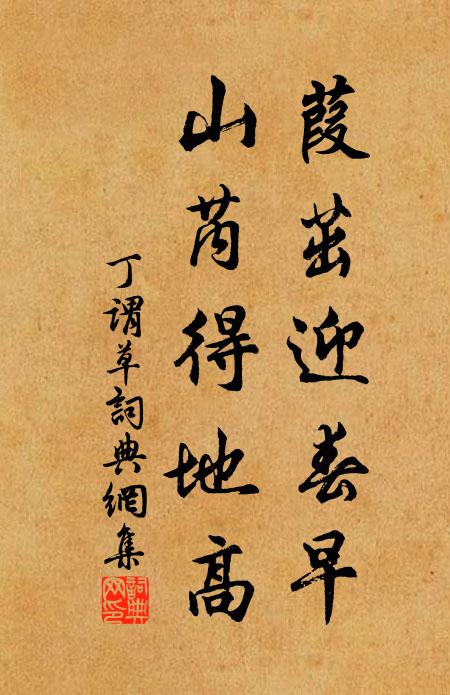 葭茁迎春早
山芮得地高
丁謂草詞典網集
詞典
网印